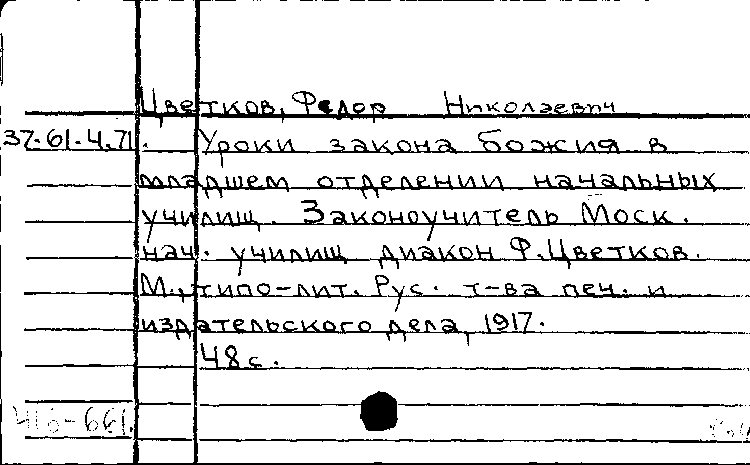 Цветков, Федор Николаевич
37.61.4.71. Уроки закона божия в
младшем отделении начальных
училищ. Законоучитель Моск.
нач. училищ диакон Ф.Цветков.
М., типо-лит. Рус. т-ва печ. и
издательского дела, 1917.
48 с.
416-661.